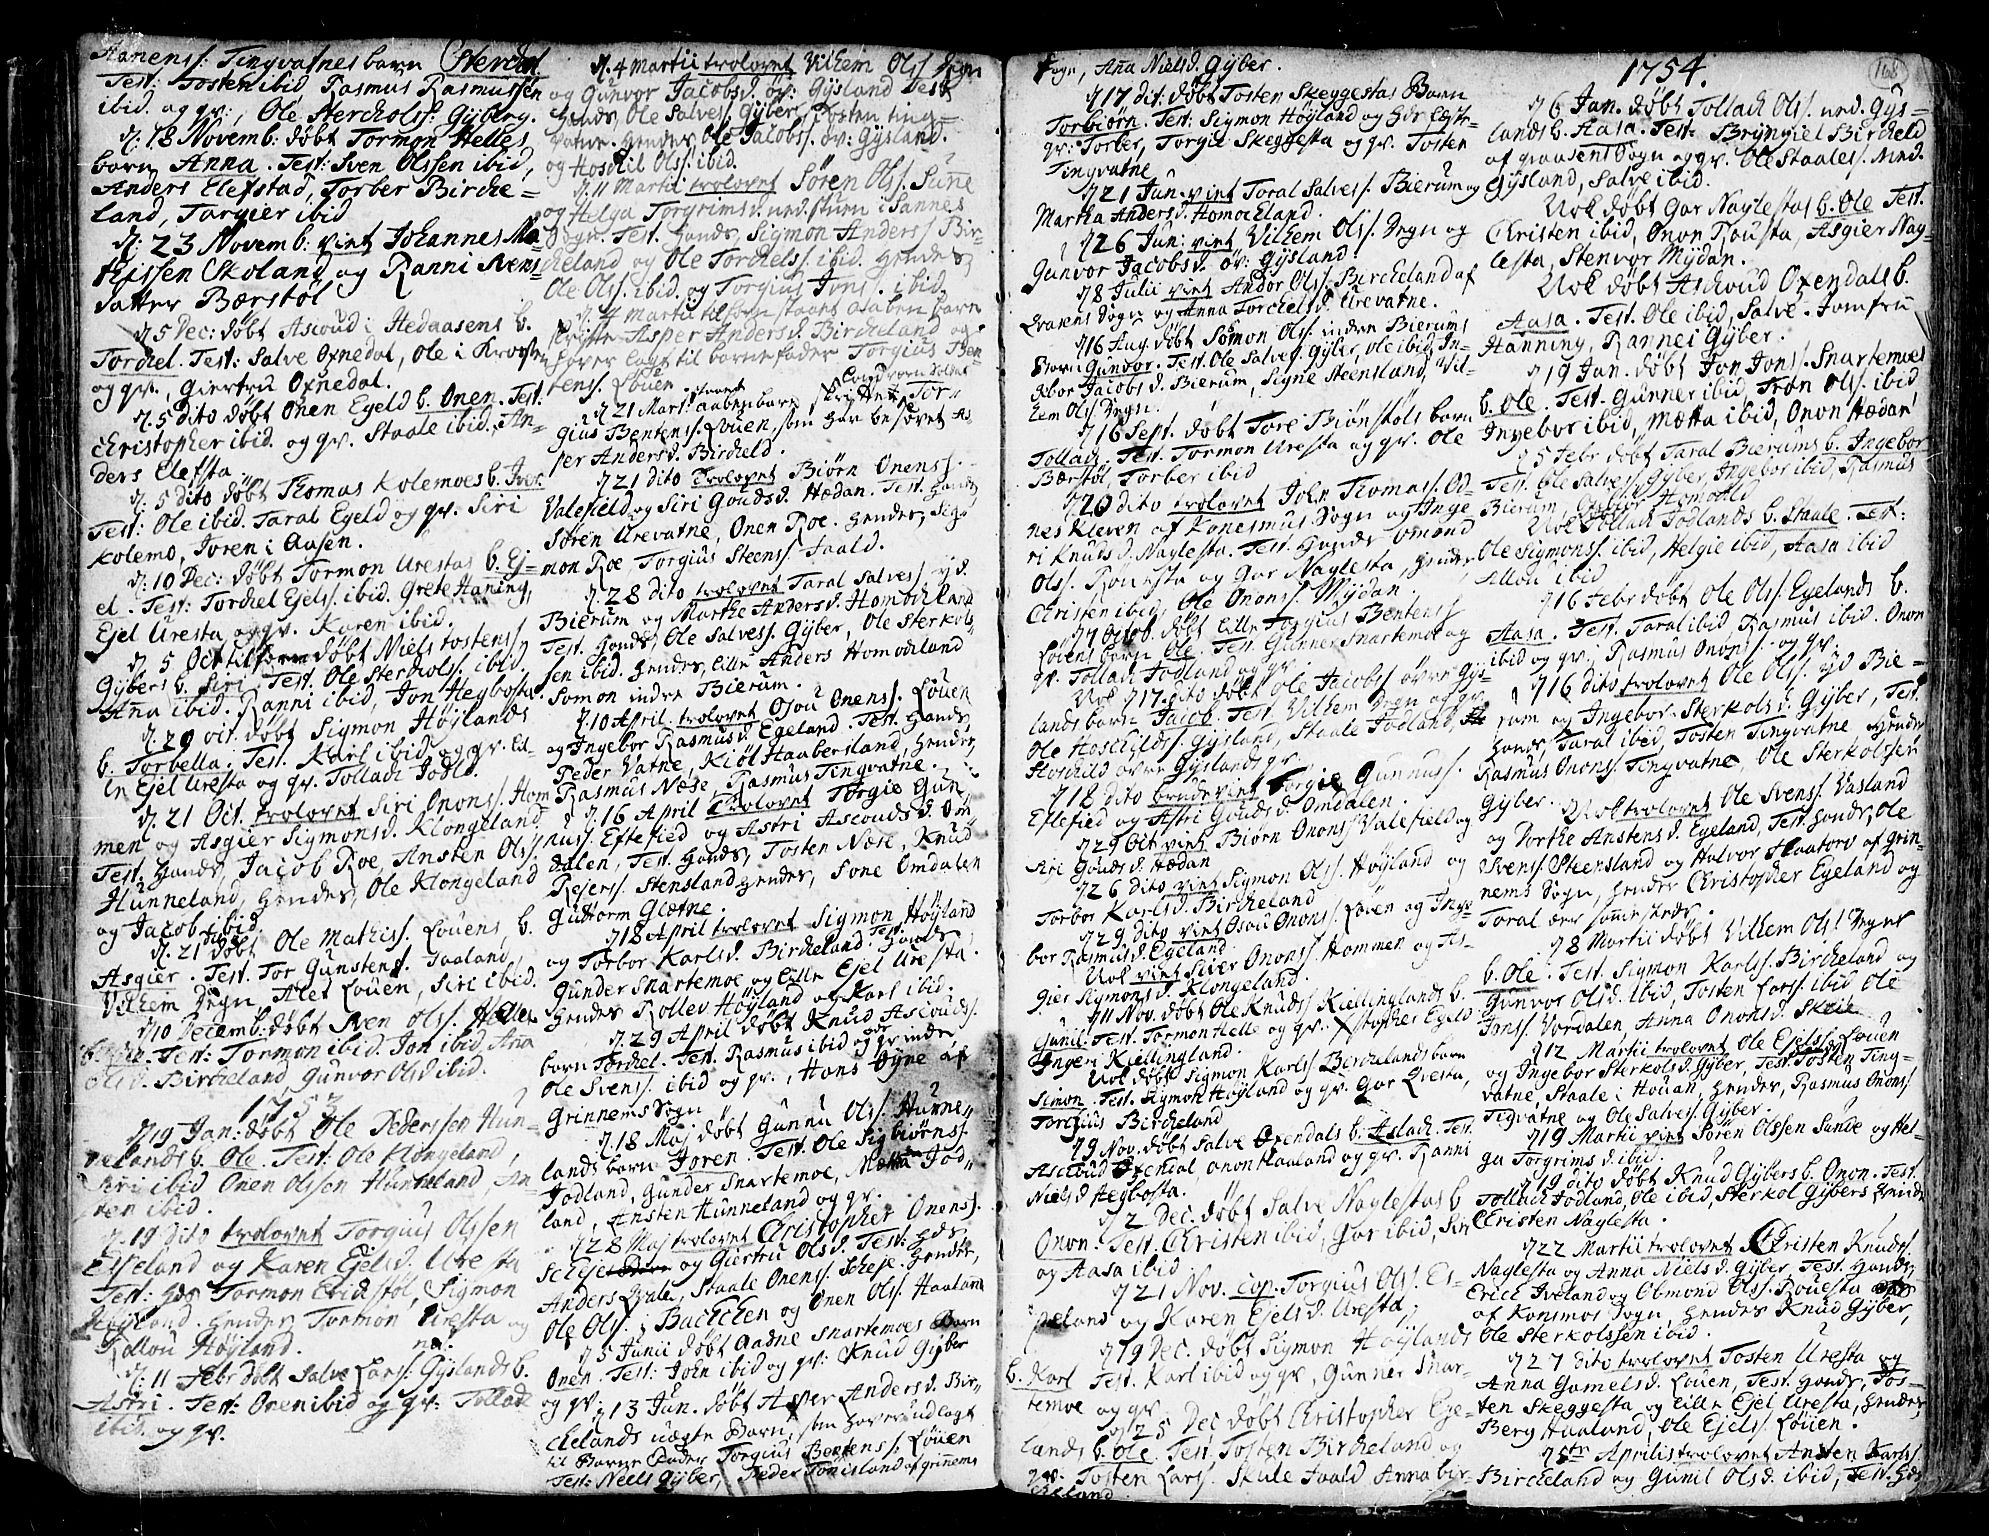 Aanenss: Tingvatnes barn Sterchel
Test: Tosten ibid Rasmus Rasmussen
ibid. og qv:, Ole Stercholss: Gyberg.
d. 18 Novemb: døbt Tormon Helles
barn Anna. Test: Sven Olssen ibid,
Anders Elefstad, Torber Birche=
land, Torgier ibid
d. 23 Novemb: viet Johannes Ma=
thissen Skoland og Ranni Svens=
datter Bærstøl
d. 5 Dec: døbt Ascoud i Hedaasens b.
Torchel. Test: Salve Oxnedal, Ole i
og qv., Giertru Oxnedal.
d. 5 dito døbt Onen Egeld b. Onen. Test.
Christopher ibid. og qv. Staale ibid. An=
ders Elefsta.
d. 5 dito døbt Thomas Kolemoes b. Iver
Test: Ole ibid. Taral Egeld og qv. Siri
Kolemo, Joren i Aasen.
d. 10 Dec: døbt Tormon Urestas b. Ej=
el. Test: Torchel Ejels. ibid. Grete Haning,
Ejel Uresta og qv. Karen ibid.
d. 5 Oct døbt Niels Tostens
Gybers b. Siri. Test. Ole Sterkolss. ibid.
Anna ibid. Ranni ibid, Jon Hegbosta.
d. 29 oct. døbt Sigmon Höylands
b. Torbella. Test. Karl ibid. og qv. Ei=
len Ejel Uresta og qv. Tollach Jodld.
d. 21 Oct. trolovet Siri Ononss. Hom
men og Asgier Sigmonsd. Klongeland
Test. Hands, Jacob Roe, Ansten Olss
Hunneland, Hendes, Ole Klongeland
og Jacob ibid.
d. 21 dito døbt Ole Mathiss. Louens b.
Asgier. Test. Tor Gunstens. Faaland,
Vilhem Degn, Alet Louen, Siri ibid.
d. 10 Decemb: døbt Sven Olss. Helles
Test: Tormon ibid. Jon ibid Ana
Olsd. Bircheland Gunvor Olsd ibid.
1753
d. 15 Jan: døbt Ole Pederssen Hun=
nelands b. Ole. Test: Ole Klongeland,
Siri ibid Onen Olssen Hunneland, An=
nen ibid.
d. 19 dito trolovet Torgius Olssen
Espeland og Karen Ejelsd. Uresta
Test: Hds Tormon Eridstöl, Sigmon
Höyland. Hendes Tormon Uresta og
Rollou Höyland.
d. 11 Febr døbt Salve Larss: Gyslands b.
Astri. Test: Onen ibid og qv: Tollach
ibid. og qv.
d. 4 Martii trolovet Vilhem Olss Degn
og Gunvor Jacobsd. öv: Gysland Test
Hends, Ole Salvess. Gyber, Tosten ting=
vatne. Hendes, Ole Jacobss. öv: Gysland.
og Hoschil Olss. ibid.
d. 11 Martii trolovet Søren Olss. Sunne
og Helga Torgrimsd. i Sannes
Sogn. Test. Hands, Sigmon Anderss Bir=
cheland og Ole Torchelss. ibid. Hendes
Ole Olss. ibid. og Torgius Jonss. ibid.
d. 4 Martii stoet aaben barn
skrifte Asper Andersd. Bircheland og
lagt til barnefader Torgius Ben=
tenss. Louen.
d. 21 Mart: stoet aabenbarn skriftet Tor=
gius Bentenss. Louen, som har besovet As=
per Andersd. Bircheld.
d. 21 dito trolovet Biørn Onenss.
Valefield og Siri Goudsd. Hædan. Test. Hands
Søren Urevatne, Onen Roe. Hendes, Sig=
mon Roe, Torgius Steenss. Faald.
d. 28 dito trolovet Taral Salvess yd.
Bierum og Marthe Andersd. Homochland
Test. Hands, Ole Salvess. Gyber, Ole Sterkols=
sen ibid. Hendes, Eille Anders Homochland
Somon indre Bierum.
d. 10 April trolovet Osou Onenss. Louen
og Ingebor Rasmusd. Egeland. Test. Hands
Peder Vatne, Kiøl Haabersland, Hendes,
Rasmus Næse, Rasmus Tingvatne.
d. 16 April trolovet Torgie Gun=
nuss. Eftefied og Astri Ascoudsd. Om
dalen, Test. Hands, Tosten Næse, Knud
Reserss. Stensland Hendes, Fone Omdalen
Guttorm Glætne.
d. 18 April trolovet Sigmon Höyland
og Torbor Karlsd. Bircheland. Test. Hands
Gunder Snartemoe og Eille Ejel Uresta.
Hendes Rollev Höyland og Karl ibid.
d. 29 April døbt Knud Ascouds.
barn Torchel. Test. Rasmus ibid og qv indre,
Ole Svenss. ibid og qv., Hans Ogne af
Grinnems Sogn
d. 18 Maj døbt Gunnu Olss. Hunne=
lands barn Joren. Test. Ole Sigbiørnss.
Jodland, Gunder Snartemoe, Mætta Jod=
land, Ansten Hunneland og qv.
d. 28 Maj trolovet Christopher Onenss.
Scheje og Giertru Olsd. Test: Hds,
Anders Qvale, Staale Onenss. Scheje. Hendes,
Ole Olss. i Bachchen og Onen Olss. Haaland
d. 5 Junii døbt Aadne Snartemoes barn
Onen. Test: John ibid og qv: Knud Gyber
og qv. d. 13 Jun. døbt Asper Andersd. Bir=
chelands uægte Barn, som har udlagt
til Barne Fader Torgius Bentenss. Louen
Test: Neels Gyber, Peder Tonisland af Grinnems
Sogn, Ana Nielsd. Gyber.
d. 17 dit. døbt Tosten Skeggestas Barn
Torbiørn. Test. Sigmon Høyland og
qv: Torber, Torgie Skeggesta og qv. Tosten
Tingvatne
d. 21 Jun. viet Toral Salvess. Bierum og
Martha Andersd. Homochland.
d. 26 Jun: viet Vilhem Olss. Degn og
Gunvor Jacobsd. öv: Gysland
d. 8 Julii viet Andor Olss. Bircheland af
Qvaasens Sogn og Anna Torchelsd. Urevatne.
d. 16 Aug. døbt Somon Olss. indre Bierums
Barn Gunvor. Test. Ole Salvess. Gyber, Ole ibid, In=
gebor Jacobsd. Bierum, Signe Steensland, Vil=
hem Olss Degn.
d. 16 Sept. døbt Tore Biønstøls barn
Tollach. Test. Tormon Uresta og qv. Ole
Bærstøl, Torber ibid
d. 20 dito trolovet John Thomass. Od=
nes Kleven af Konesmus Sogn og Inge
ri Knudsd. Naglesta. Test. Hands Omond
Olss. Rouesta og Gar Naglesta, Hendes
Christen ibid, Ole Ononss. Mydan.
d. 7 Octob. døbt Eille Torgius Bentenss
Louens barn Ole. Test. Gunner Snartemoe og
qv. Tollach Jodland og qv.
Nok d. 17 dito døbt Ole Jacobss øvre Gys=
lands barn Jacob. Test. Vilhem Degn og qv.
Ole Hoschildss. Gysland, Staale Jodland,
Hoschild øvre Gyslands qv.
d. 18 dito brudeviet Torgie Gunnuss.
Eftefied og Astri Goudsd. Omdalen.
d. 29 Oct viet Biørn Ononss Valefield og
Siri Goudsd. Hædan
d. 26 dito viet Sigmon Olss. Høyland og
Torbor Karlsd. Bircheland
d. 29 dito viet Osou Ononss. Louen og Inge=
bor Rasmusd. Egeland.
Nok viet Siver Ononss. Hommen og As=
gier Sigmonsd. Klongeland.
d. 11 Nov. døbt Ole Knudss Kiellinglands b.
Gunil. Test. Tormon Helle og qv. Xstopher Egeld
Ingeri Kiellingland.
Nok døbt Sigmon Karlss Birchelands barn
Simon. Test. Sigmon Høyland og qv. Gar Qvesta,
Torgius Bircheland
d. 9 Nov. døbt Salve Oxendals b. Aslach. Test.
Ascoud Oxendal, Onon Haaland og qv. Ranni
Nielsd Hegbosta.
d. 2 Dec. døbt Salve Naglestas b
Onon. Test. Christen ibid, Gar ibid, Siri
og Aasa ibid
d. 21 Nov. cop. Torgius Olss. Es=
peland og Karen Ejelsd. Uresta,
d. 19 Dec. døbt Sigmon Höylands
b. Karl Test. Karl ibid og qv, Gunner Snar=
temoe og qv.
d. 25 Dec døbt Christopher Ege=
lands b. Ole. Test. Tosten Bircheland og
qv. Tosten Larss. Skule Faald Anna Bir=
cheland.
1754.
168
d. 6 Jan. døbt Tollach Olss. nrd. Gys=
lands b. Aasa. Test. Brynyiel Bircheld
af Qvaasens Sogn og qv. Ole Staaless. Nrd.
Gysland, Salve ibid.
Nok døbt Gar Naglestas b. Ole Test.
Christen ibid, Onon Rousta, Asgier Nag=
lesta, Stenvor Mydan.
Nok døbt Aschoud Oxendals b.
Aasa. Test. Ole ibid, Salve. Jomfru
Hanning, Rannei Gyber.
d. 19 Jan. døbt Jon Jonss. Snartemoes
b. Ole. Test. Gunner ibid, Tron Olss. ibid
Ingebor ibid, Mætta ibid, Onon Hædan
d. 5 Febr døbt Taral Bierums b. Ingebor
Test. Ole Salvess Gyber, Ingebor ibid, Rasmus
Bierum, Gyber Homochld
Nok Tollach Jodlands b. Staale. Test:
Ole Sigmonss. ibid, Helgie ibid, Aasa ibid
Allou ibid
d. 16 Febr døbt Ole Olss. Egelands b.
Aasa. Test. Taral ibid Rasmus ibid. Onon
ibid og qv. Rasmus Ononss. og qv.
d. 16 dito trolovet Ole Olss. yd Bie=
rum og Ingebor Sterkolsd. Gyber, Test.
Hands, Taral ibid, Tosten Tingvatne, Hendes
Rasmus Ononss. Tingvatne, Ole Sterkolssen
Gyber. Nok trolovet Ole Svenss. Vasland
og Dorthe Anstensd. Egeland, Test. Hands, Ole
Svenss Steensland og Halvor Flaatorv af Grin=
nems Sogn, Hendes Christopher Egeland og
Toral ibid samme steds.
d. 8 Martii døbt Vilhem Olss Degns
b. Ole. Test. Sigmon Karlss. Bircheland og
Gunvor Olsd. ibid, Tosten Larss. ibid Ole
Jonss. Vordalen, Anna Ononsd. Skeie
d. 12 Martii trolovet Ole Ejelss. Louen
og Ingebor Sterkolsd. Gyber, Test. Tosten Ting=
vatne, Staale i Houan, Hendes, Rasmus Ononss
Tingvatne og Ole Salvess. Gyber.
d. 19 Martii viet Søren Olssen Sunde og Hel=
ga Torgrimsd. ibid.
d. 19 dito døbt Knud Gybers b. Onon. Test.
Tollach Jodland, Ole ibid, Sterkol Gybers Hende
Christen Naglesta.
d. 22 Martii trolovet Christen Knudss.
Naglesta og Anna Nielsd. Gyber Test. Hands
Erich Iveland og Obmond Olss. Rouesta
af Konsmos Sogn, Hendes Knud Gyber,
Ole Sterkolssen ibid.
d. 27 dito trolovet Tosten Uresta og
Anna Gamelsd. Louen, Test. Hands, Tos=
ten Skeggesta og Eille Ejel Uresta, Hendes,
Berg Haaland, Ole Ejelss Louen.
d. 5te Aprilis trolovet Ansten Karlss.
Bircheland og Gunil Olsd. ibid, Test. Hds